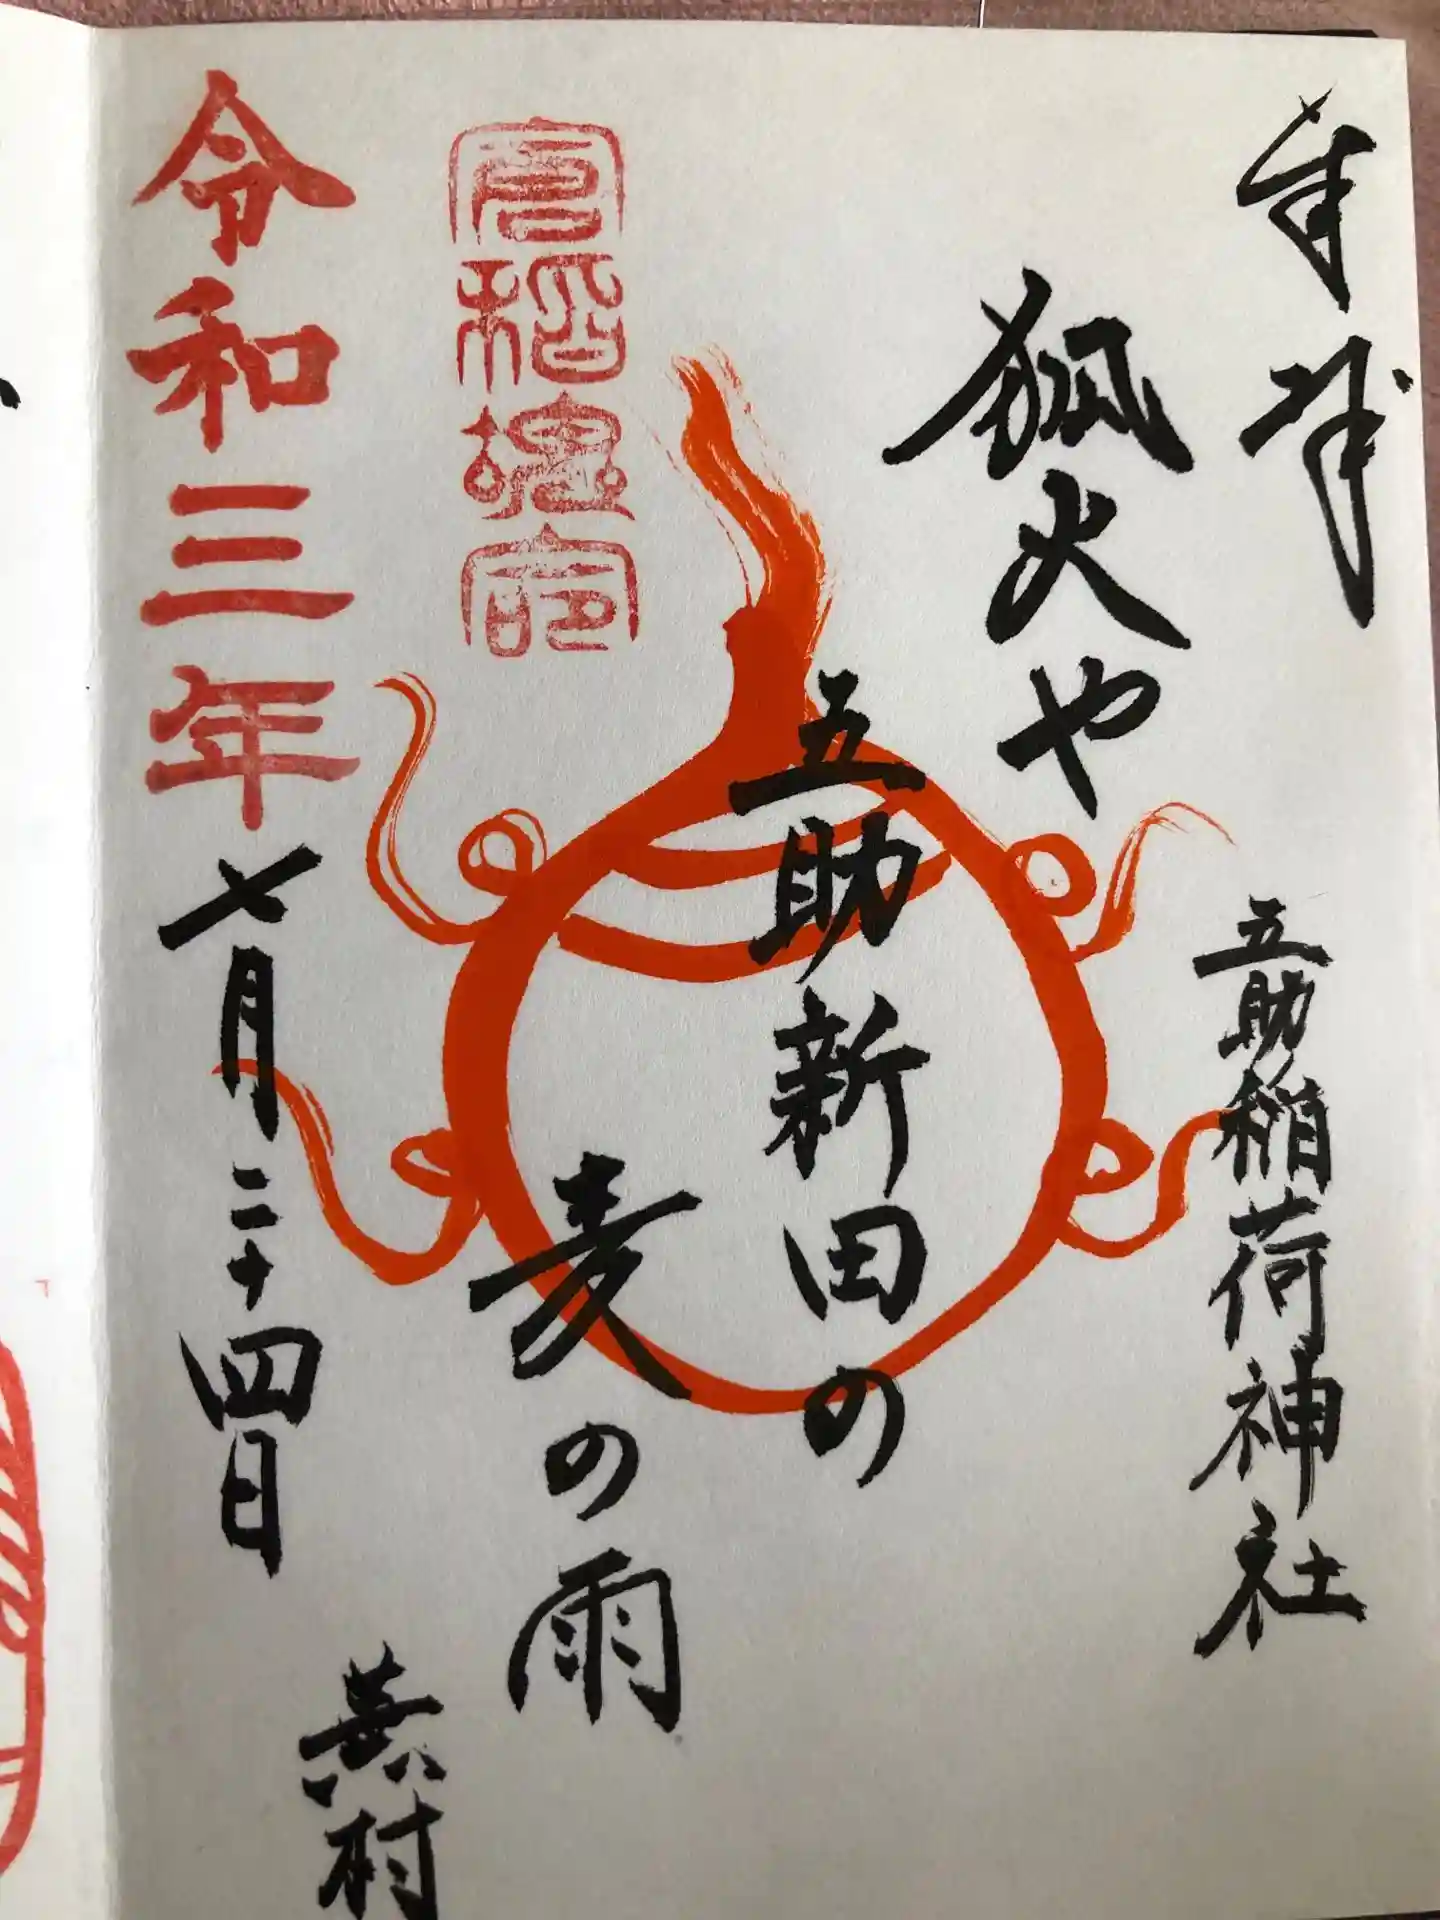 奉拝
五助稲荷神社
狐火や
五助新田の
麦の雨
蕪村
令和三年七月二十四日